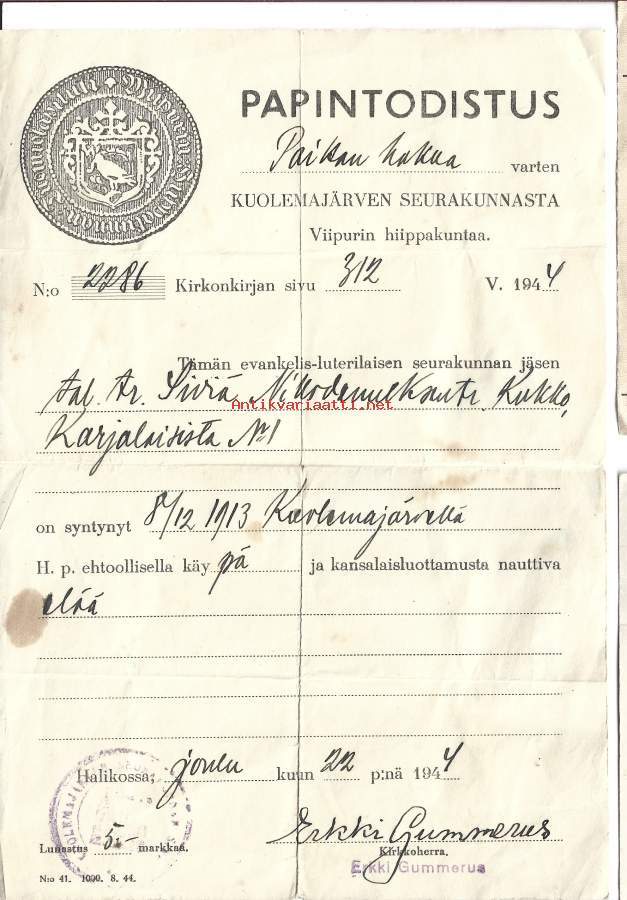 PAPINTODISTUS
Paikan hakua varten
KUOLEMAJÄRVEN SEURAKUNNASTA
Viipurin hiippakuntaa.
N:o 2286 Kirkonkirjan sivu 312 V. 1944
Tämän evankelis-luterilaisen seurakunnan jäsen
tal. tr. Siviä Nikodemuksentr. Kukko,
Antikvariaatti.net
Karjalaisista №1
on syntynyt 8/12 1913 Kuolemajärvellä
H. p. ehtoollisella käy pä ja kansalaisluottamusta nauttiva
elää
Halikossa, joulu kuun 22 p:nä 1944
Erkki Gummerus
Lunastus 5:- markkaa.
Kirkkoherra.
Erkki Gummerus
N:o 41. 1000. 8. 44.